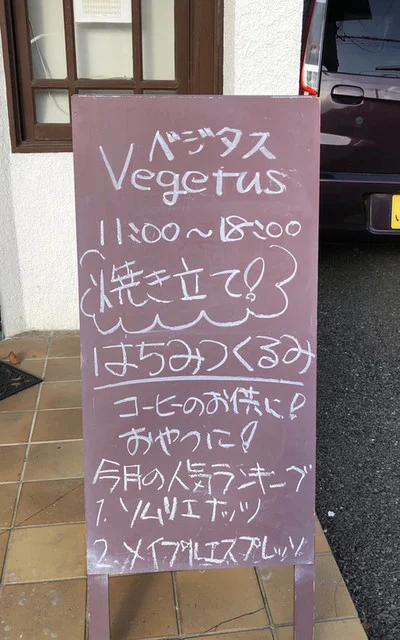 ベジタス
Vegetus
11:00〜18:00
焼き立て!
はちみつくるみ
コーヒーのお供に!
おやつに!
今月の人気ランキング
1. ソムリエナッツ
2. メイプルエスプレッソ